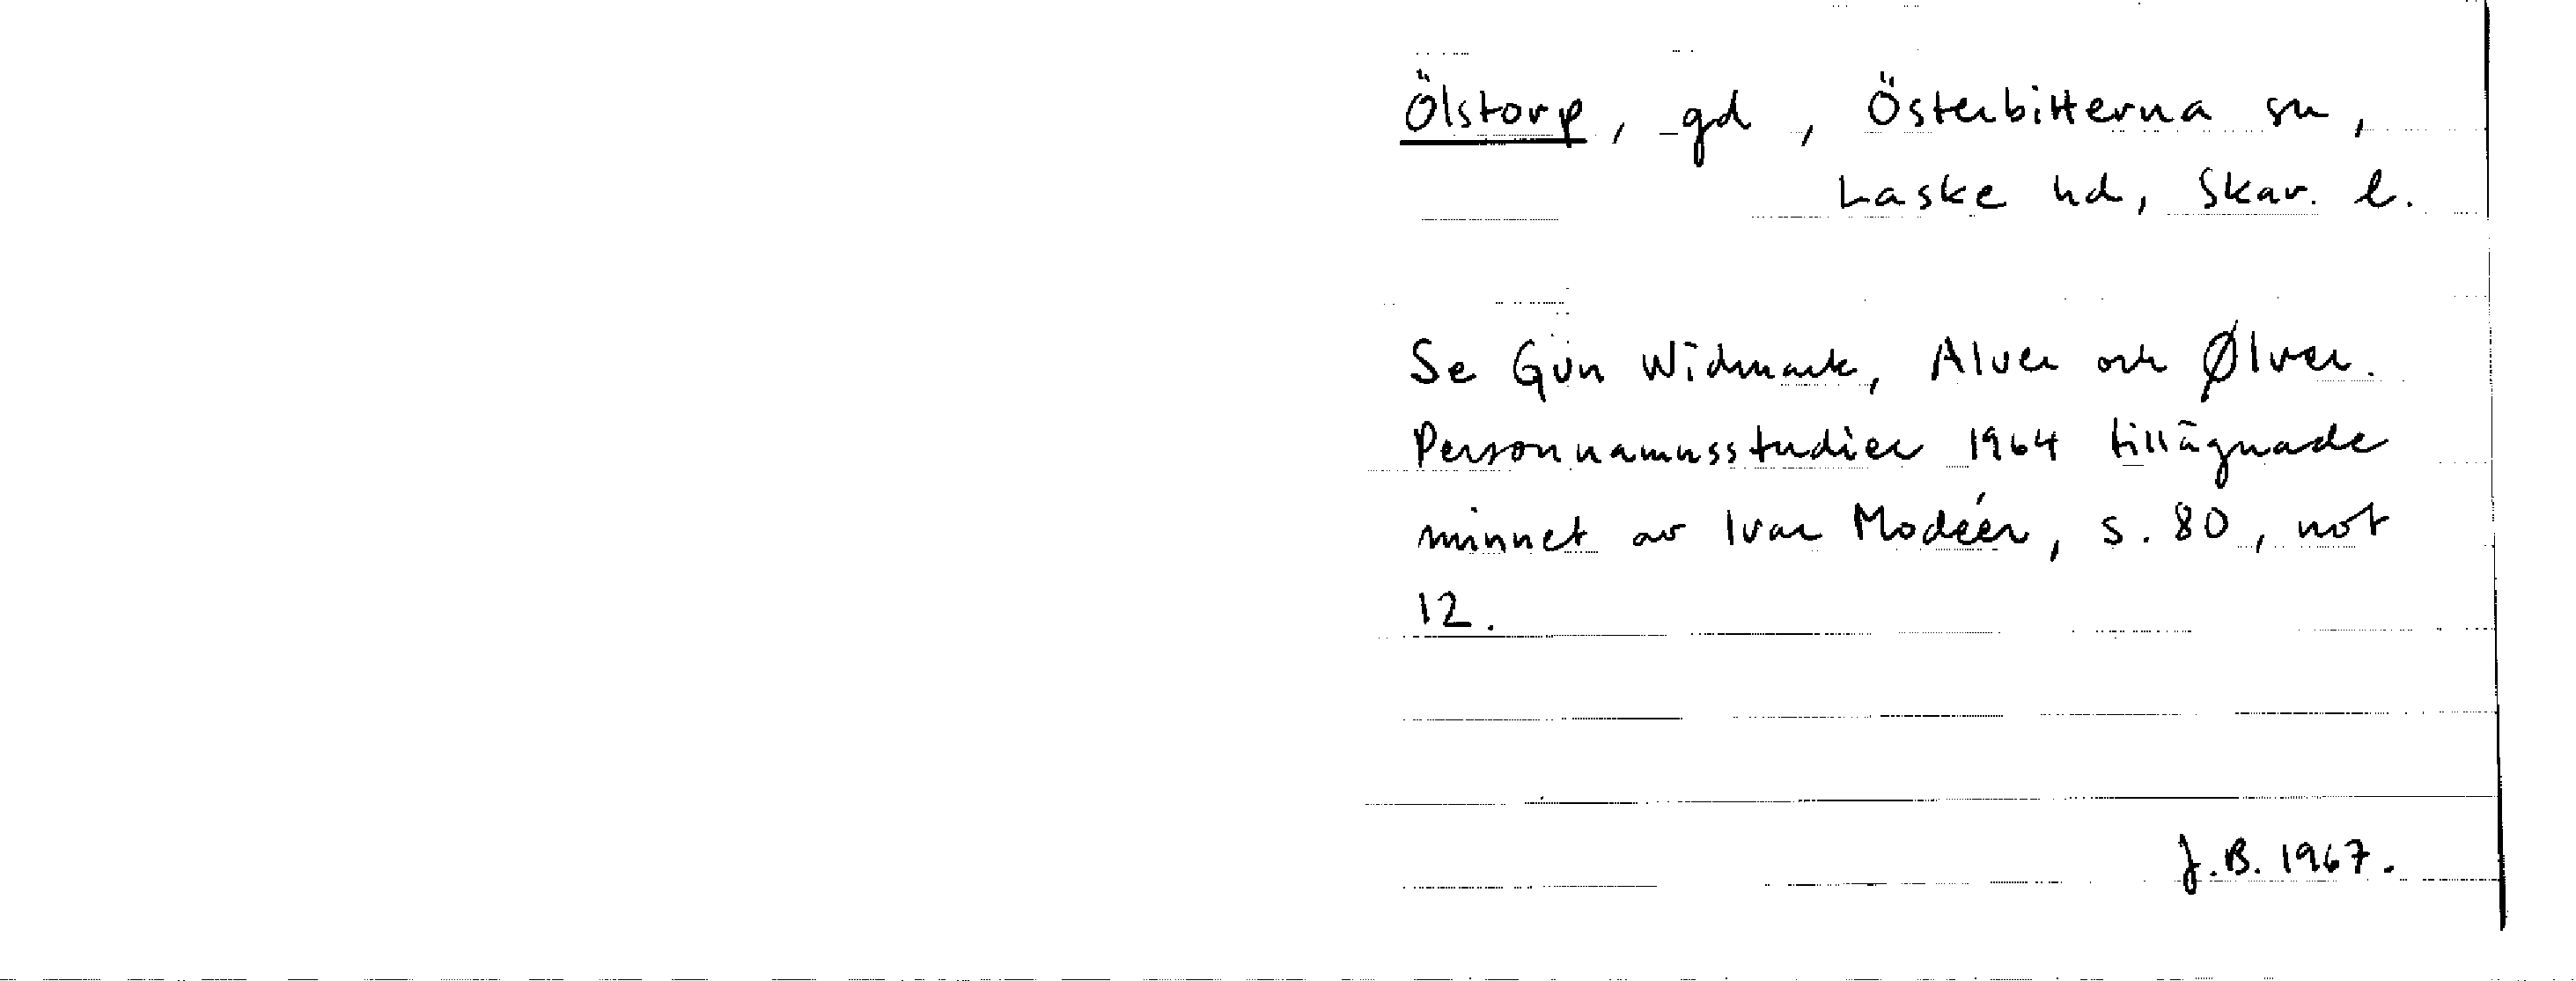 Ölstorp, gd, Österbitterna sn,
Laske hd, Skar. l.
Se Gun Widmark, Alver och Ølver.
Personnamnsstudier 1964 tillägnade
minnet av Ivar Modéer, s. 80, not
12.
J.B. 1967.